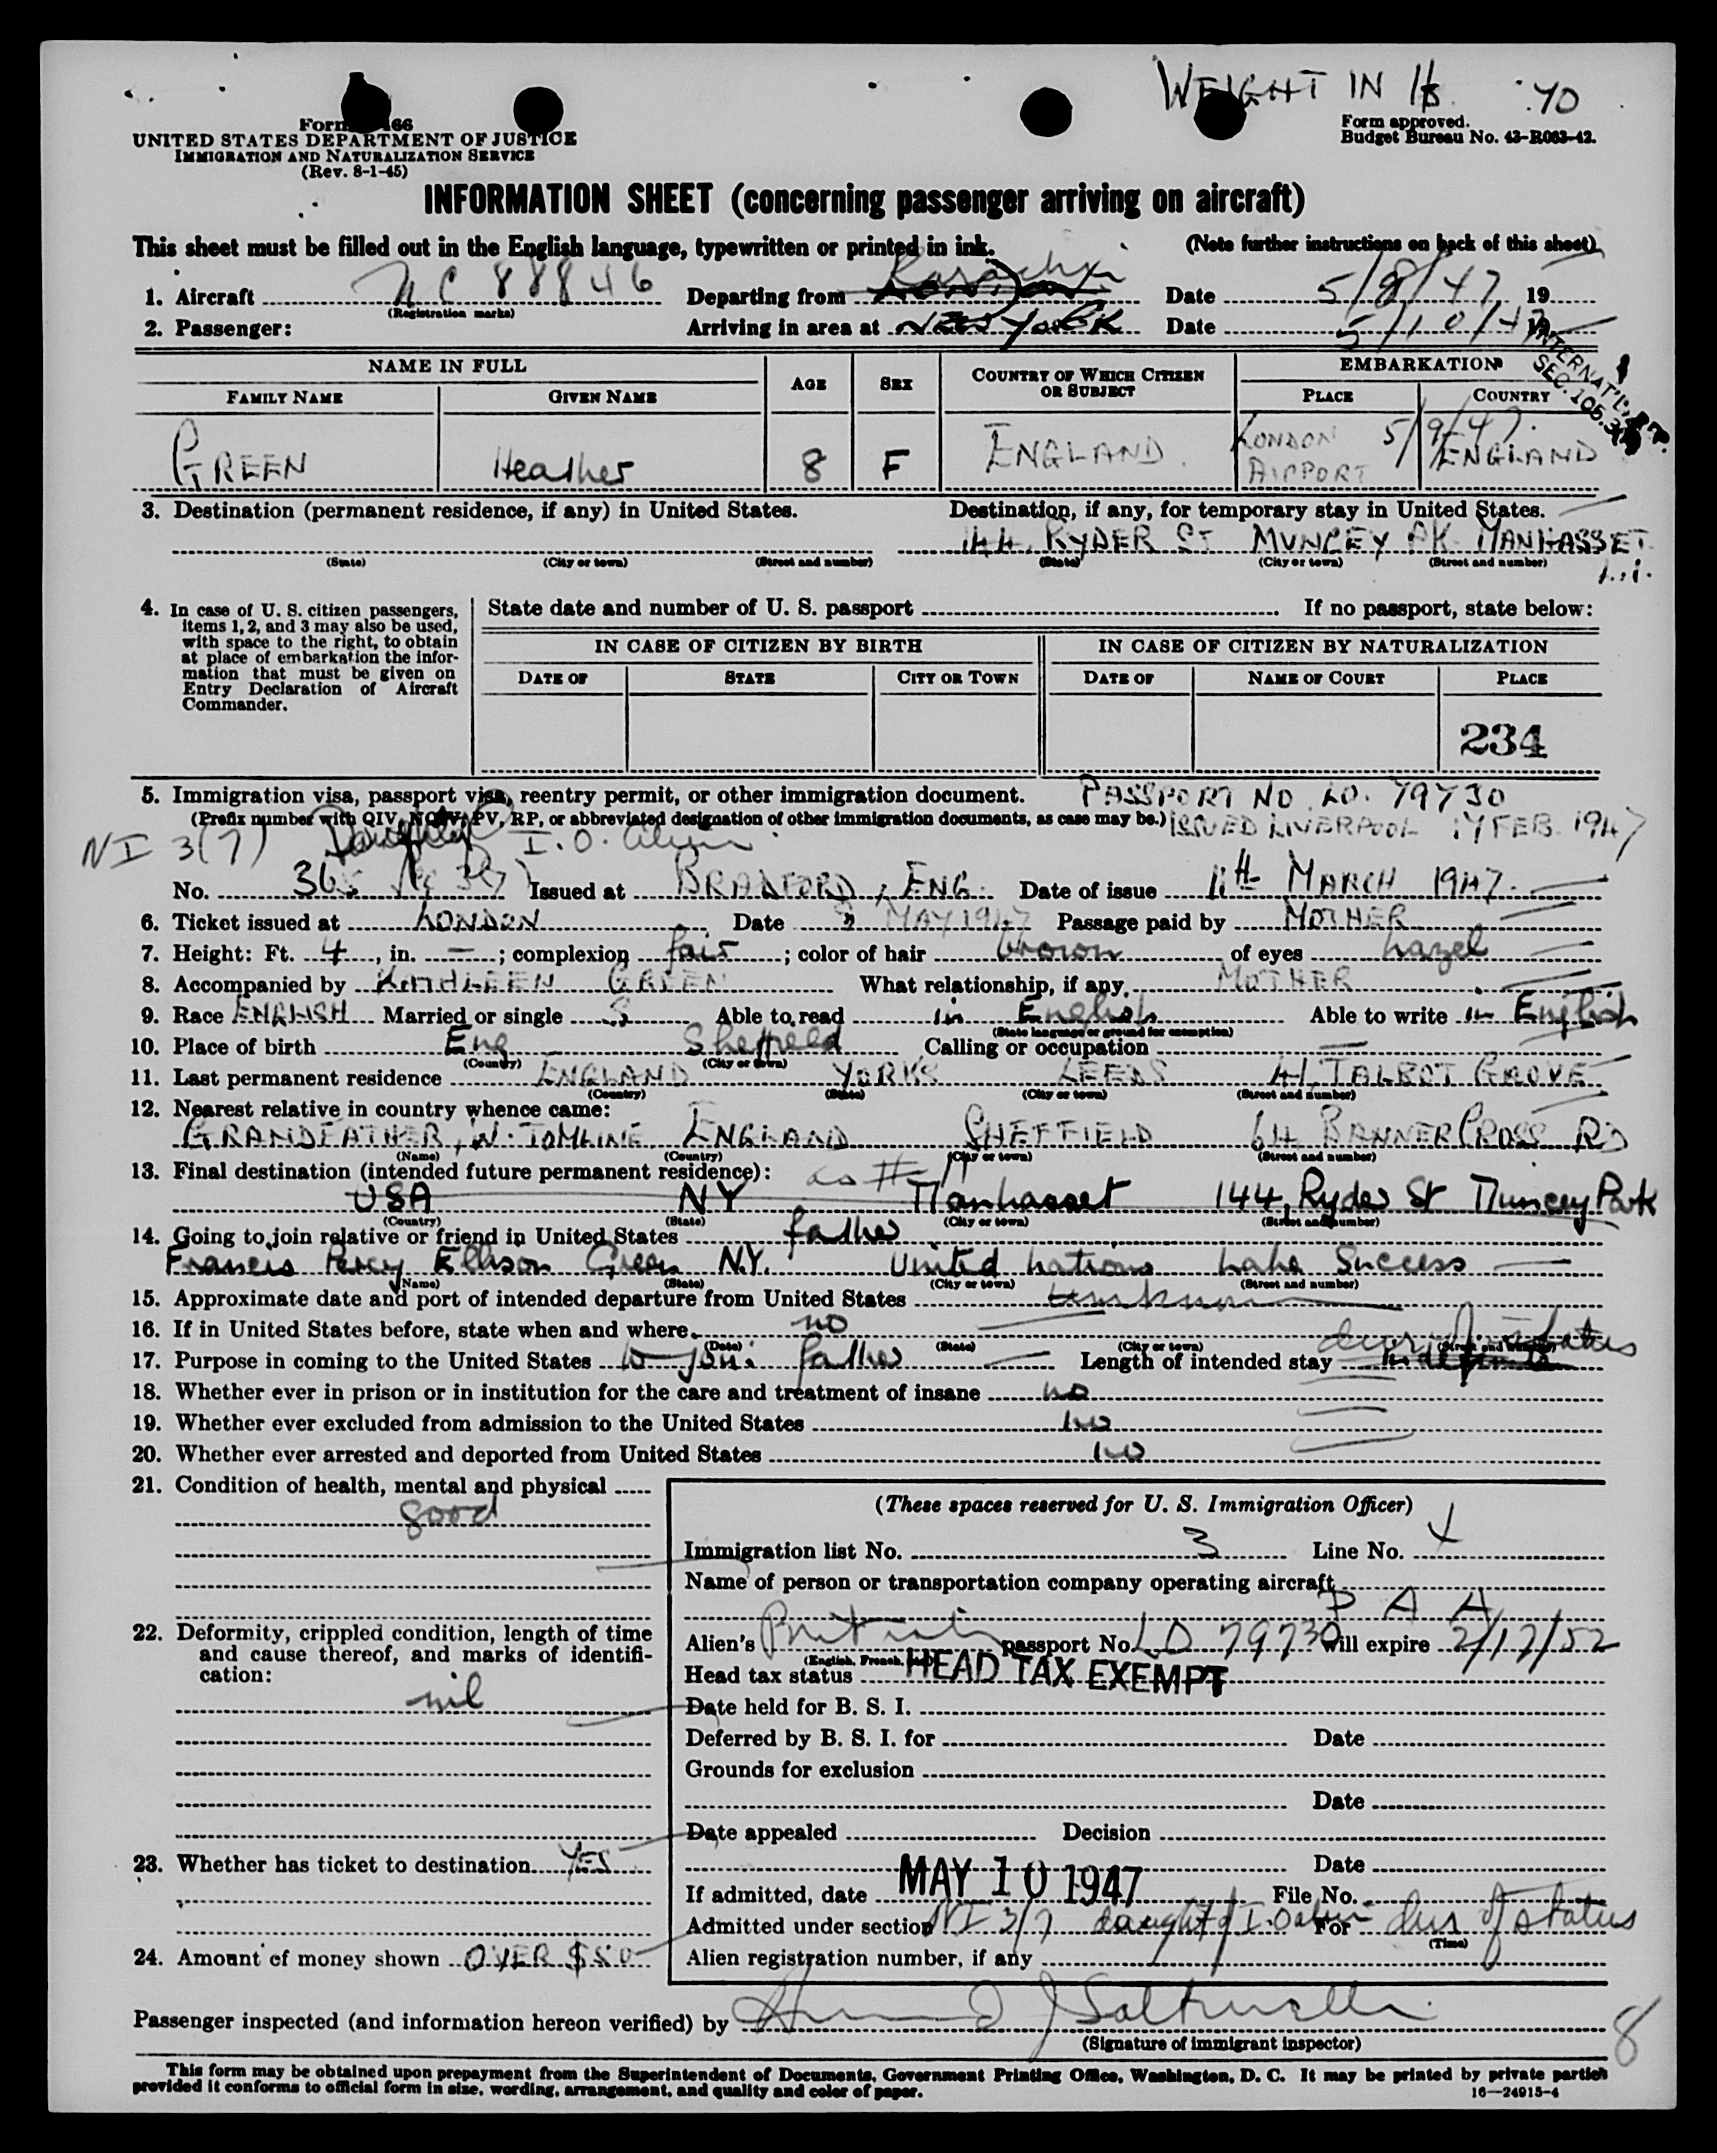 WEIGHT IN lbs. 70
Form 466
UNITED STATES DEPARTMENT OF JUSTICE
IMMIGRATION AND NATURALIZATION SERVICE
(Rev. 8-1-45)
Form approved.
Budget Bureau No. 43-R083-42.
INFORMATION SHEET (concerning passenger arriving on aircraft)
This sheet must be filled out in the English language, typewritten or printed in ink. (Note further instructions on back of this sheet)
1. Aircraft NC 88846 Departing from Karachi London Date 5/8/47 19
(Registration marks)
2. Passenger: Arriving in area at NEW YORK Date 5/10/47 19
INTERNAT'L
SEC. 105.3
NAME IN FULL AGE SEX COUNTRY OF WHICH CITIZEN OR SUBJECT EMBARKATION
FAMILY NAME GIVEN NAME PLACE COUNTRY
GREEN Heather 8 F ENGLAND. LONDON AIRPORT 5/9/47. ENGLAND
3. Destination (permanent residence, if any) in United States. Destination, if any, for temporary stay in United States.
144 RYDER ST MUNCEY PK MANHASSET
L.I.
(State) (City or town) (Street and number) (State) (City or town) (Street and number)
4. In case of U. S. citizen passengers, items 1, 2, and 3 may also be used, with space to the right, to obtain at place of embarkation the information that must be given on Entry Declaration of Aircraft Commander.
State date and number of U. S. passport If no passport, state below:
IN CASE OF CITIZEN BY BIRTH IN CASE OF CITIZEN BY NATURALIZATION
DATE OF STATE CITY OR TOWN DATE OF NAME OF COURT PLACE
234
5. Immigration visa, passport visa, reentry permit, or other immigration document. PASSPORT NO LO. 79730
(Prefix number with QIV, NQIV, PV, RP, or abbreviated designation of other immigration documents, as case may be.) ISSUED LIVERPOOL 17 FEB. 1947
NI 3(7) Daughter I.O. alien
No. 365 Issued at BRADFORD, ENG. Date of issue 11th MARCH 1947.
6. Ticket issued at LONDON Date 8 MAY 1947 Passage paid by MOTHER
7. Height: Ft. 4, in. —; complexion fair; color of hair brown of eyes hazel
8. Accompanied by KATHLEEN GREEN What relationship, if any, MOTHER
9. Race ENGLISH Married or single S Able to read in English Able to write in English
(State language or ground for exemption)
10. Place of birth Eng Sheffield Calling or occupation —
(Country) (City or town)
11. Last permanent residence ENGLAND YORKS LEEDS 41, TALBOT GROVE
(Country) (State) (City or town) (Street and number)
12. Nearest relative in country whence came:
GRANDFATHER, W. TOMLINE ENGLAND SHEFFIELD 64 BANNER CROSS RD
(Name) (Country) (City or town) (Street and number)
13. Final destination (intended future permanent residence): as # 11
USA NY Manhasset 144, Ryder St Muncey Park
(Country) (State) (City or town) (Street and number)
14. Going to join relative or friend in United States father
Francis Percy Ellison Green N.Y. United Nations Lake Success
(Name) (State) (City or town) (Street and number)
15. Approximate date and port of intended departure from United States unknown
16. If in United States before, state when and where no
(Date) (State) (City or town) (Street and number)
17. Purpose in coming to the United States to join father Length of intended stay indefinite dur of status
18. Whether ever in prison or in institution for the care and treatment of insane no
19. Whether ever excluded from admission to the United States no
20. Whether ever arrested and deported from United States no
21. Condition of health, mental and physical
good
22. Deformity, crippled condition, length of time and cause thereof, and marks of identification:
nil
23. Whether has ticket to destination YES
24. Amount of money shown OVER $50
(These spaces reserved for U. S. Immigration Officer)
Immigration list No. 3 Line No. 4
Name of person or transportation company operating aircraft
P A A
Alien's British passport No. LO 79730 will expire 2/17/52
(English, French, etc.)
Head tax status HEAD TAX EXEMPT
Date held for B. S. I.
Deferred by B. S. I. for Date
Grounds for exclusion
Date
Date appealed Decision
Date
If admitted, date MAY 10 1947 File No.
Admitted under section NI 3/7 daught of I.O alien For dur of status
(Time)
Alien registration number, if any
Passenger inspected (and information hereon verified) by
(Signature of immigrant inspector)
8
This form may be obtained upon prepayment from the Superintendent of Documents, Government Printing Office, Washington, D. C. It may be printed by private parties
provided it conforms to official form in size, wording, arrangement, and quality and color of paper. 16—24915-4